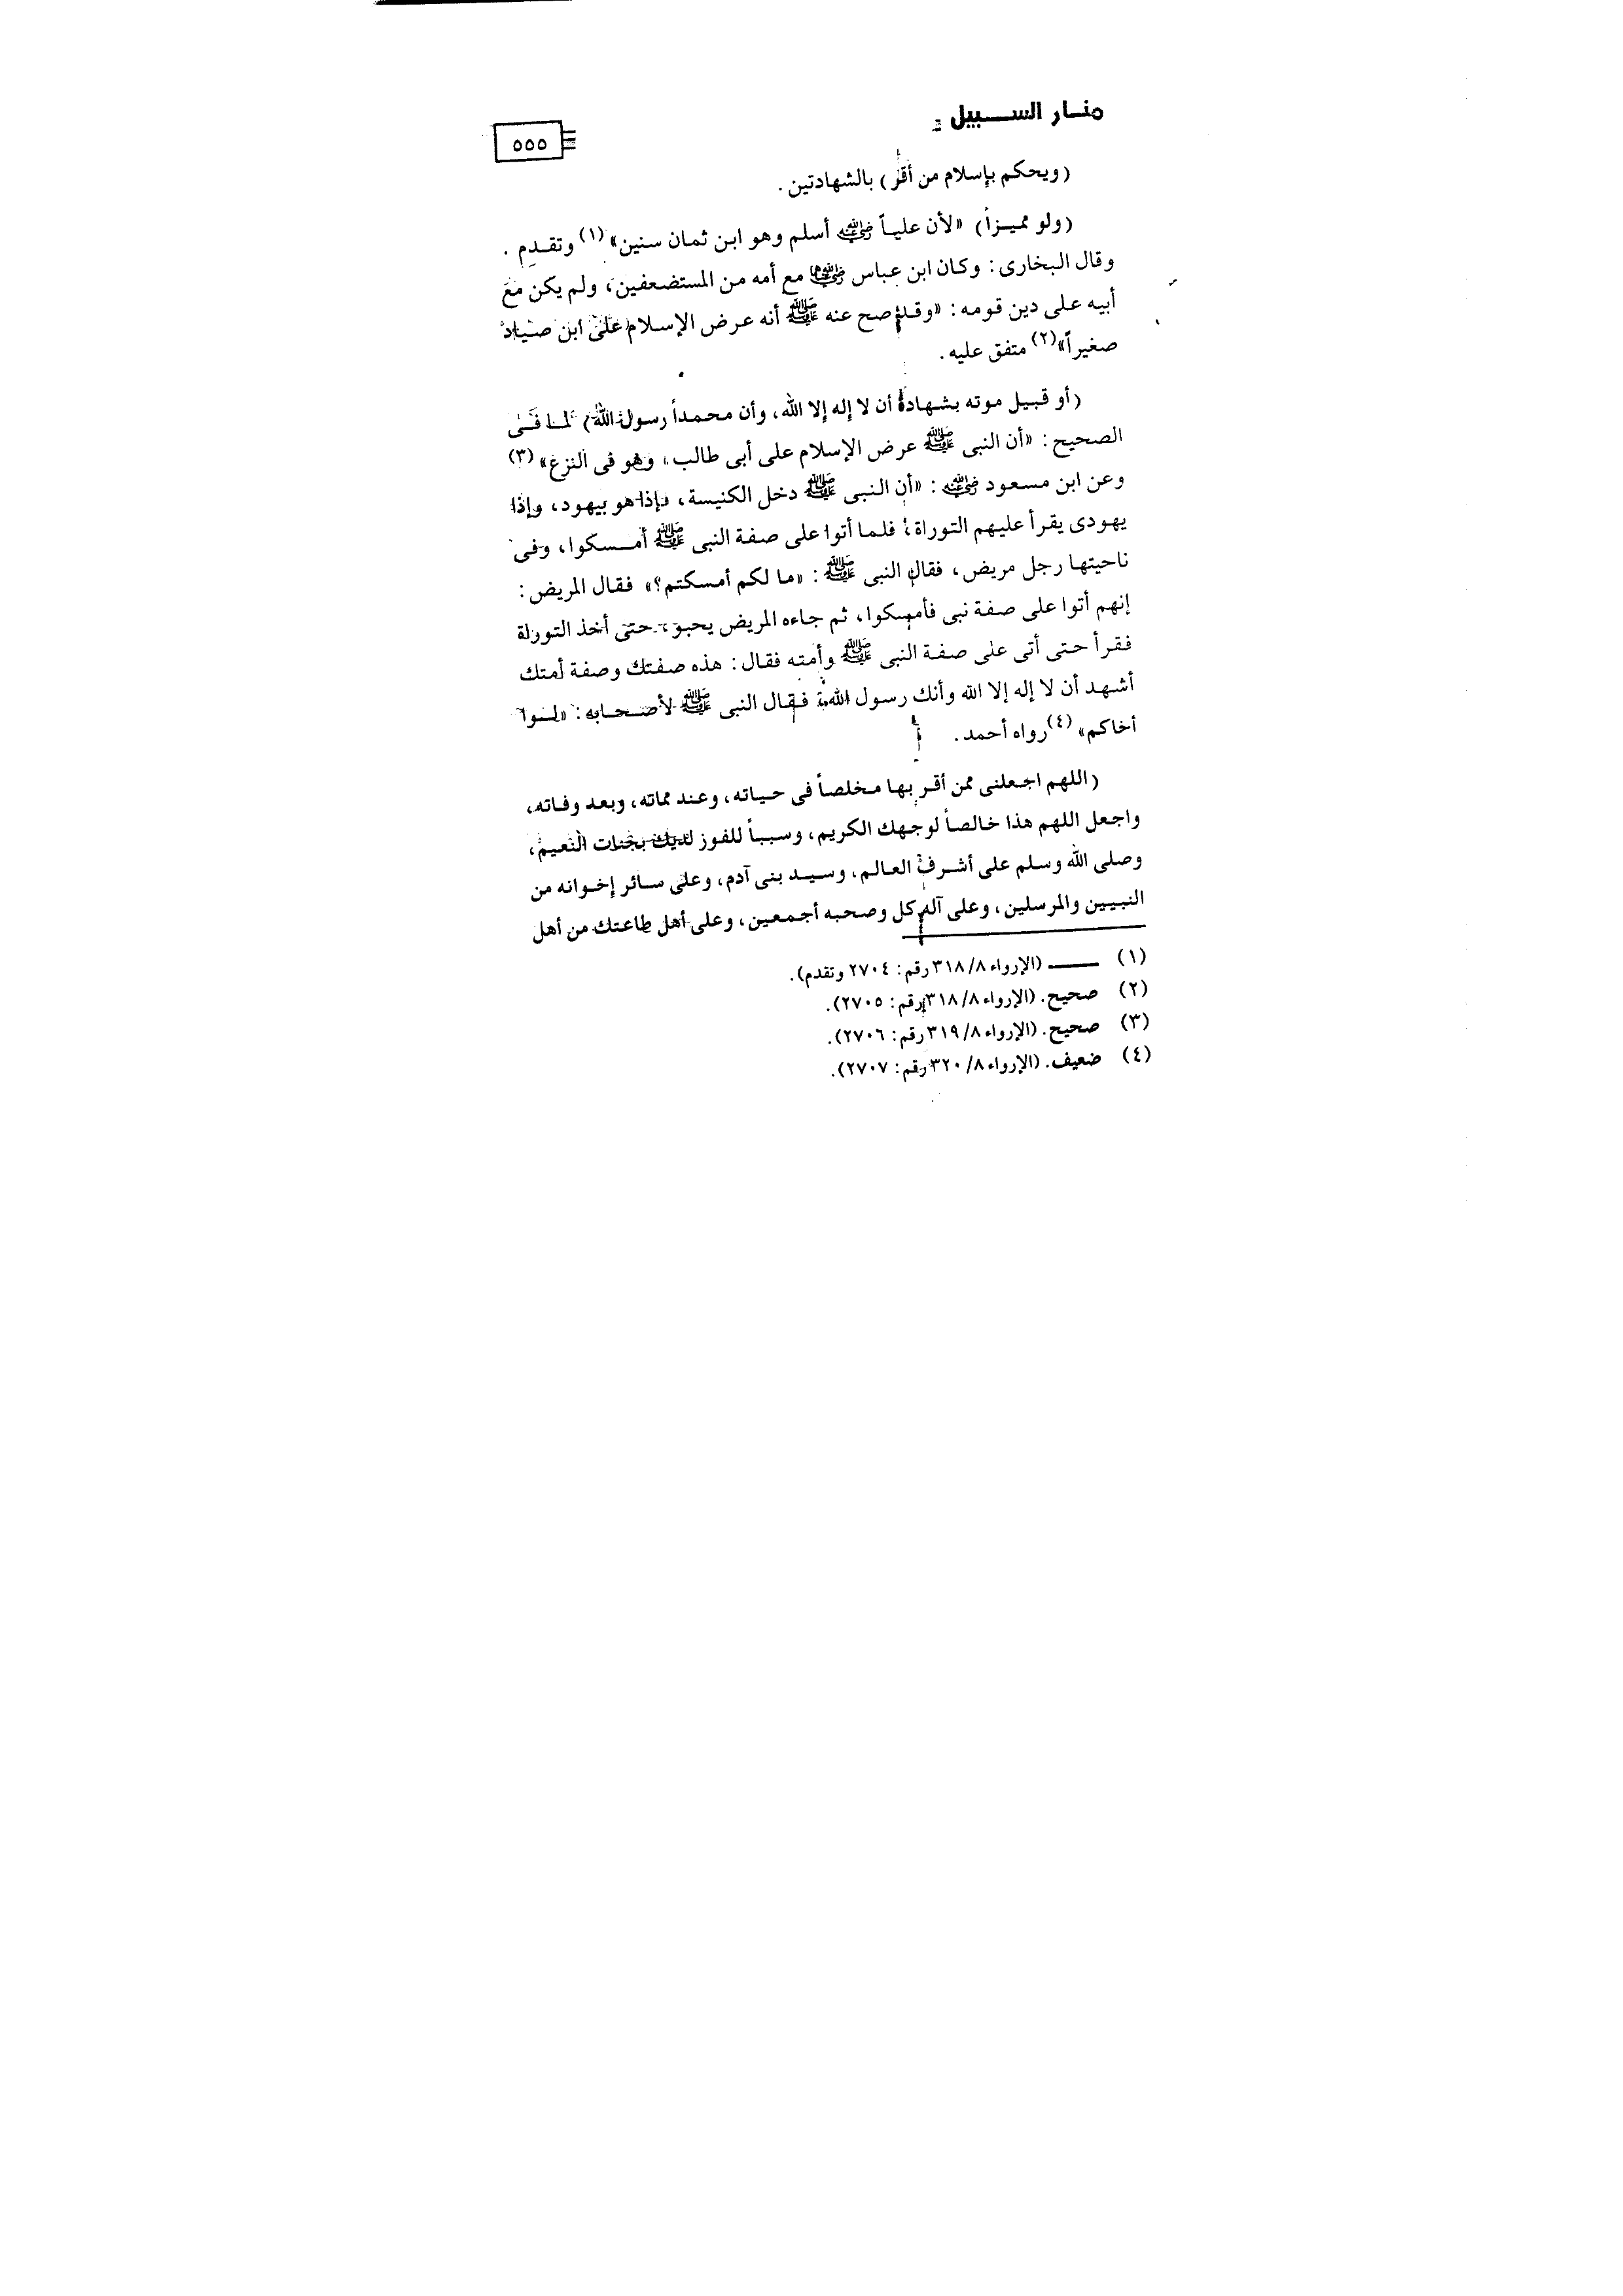 منار السبيل
٥٥٥
(ويحكم بإسلام من أقر) بالشهادتين.
(ولو مميزاً) «لأن علياً رضي الله عنه أسلم وهو ابن ثمان سنين»(١) وتقدم.
وقال البخارى: وكان ابن عباس رضي الله عنهما مع أمه من المستضعفين، ولم يكن مع
أبيه على دين قومه: «وقد صح عنه ﷺ أنه عرض الإسلام على ابن صياد
صغيراً»(٢) متفق عليه.
(أو قبيل موته بشهادة أن لا إله إلا الله، وأن محمداً رسول الله) لما فى
الصحيح: «أن النبى ﷺ عرض الإسلام على أبى طالب، وهو فى النزع»(٣)
وعن ابن مسعود رضي الله عنه: «أن النبى ﷺ دخل الكنيسة، فإذا هو بيهود، وإذا
يهودى يقرأ عليهم التوراة، فلما أتوا على صفة النبى ﷺ أمسكوا، وفى
ناحيتها رجل مريض، فقال النبى ﷺ: «ما لكم أمسكتم؟» فقال المريض:
إنهم أتوا على صفة نبى فأمسكوا، ثم جاءه المريض يحبو، حتى أخذ التوراة
فقرأ حتى أتى على صفة النبى ﷺ وأمته فقال: هذه صفتك وصفة أمتك
أشهد أن لا إله إلا الله وأنك رسول الله، فقال النبى ﷺ لأصحابه: «لوا
أخاكم»(٤) رواه أحمد.
(اللهم اجعلنى ممن أقر بها مخلصاً فى حياته، وعند مماته، وبعد وفاته،
واجعل اللهم هذا خالصاً لوجهك الكريم، وسبباً للفوز لديك بجنات النعيم،
وصلى الله وسلم على أشرف العالم، وسيد بنى آدم، وعلى سائر إخوانه من
النبيين والمرسلين، وعلى آله كل وصحبه أجمعين، وعلى أهل طاعتك من أهل
(١) ــــــ (الإرواء ٣١٨/٨ رقم: ٢٧٠٤ وتقدم).
(٢) صحيح. (الإرواء ٣١٨/٨ رقم: ٢٧٠٥).
(٣) صحيح. (الإرواء ٣١٩/٨ رقم: ٢٧٠٦).
(٤) ضعيف. (الإرواء ٣٢٠/٨ رقم: ٢٧٠٧).